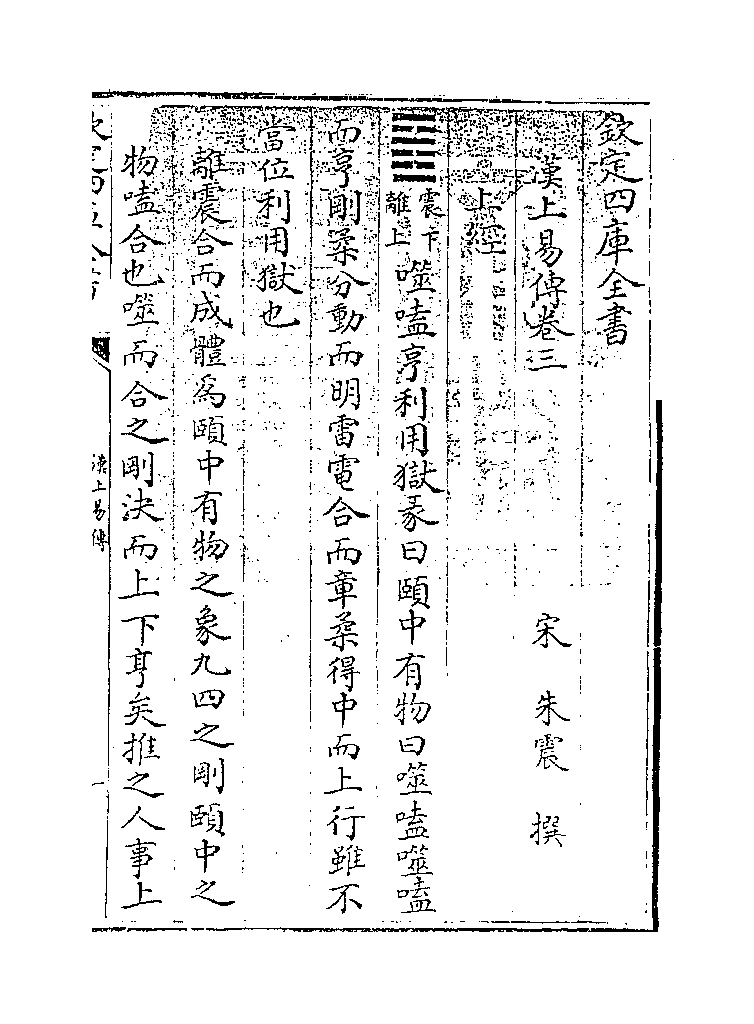 欽定四庫全書
漢上易傳卷三
宋 朱震 撰
上經
䷔震下離上噬嗑亨利用獄彖曰頤中有物曰噬嗑噬嗑
而亨剛柔分動而明雷電合而章柔得中而上行雖不
當位利用獄也
離震合而成體為頤中有物之象九四之剛頤中之
物嗑合也噬而合之剛決而上下亨矣推之人事上
漢上易傳
一